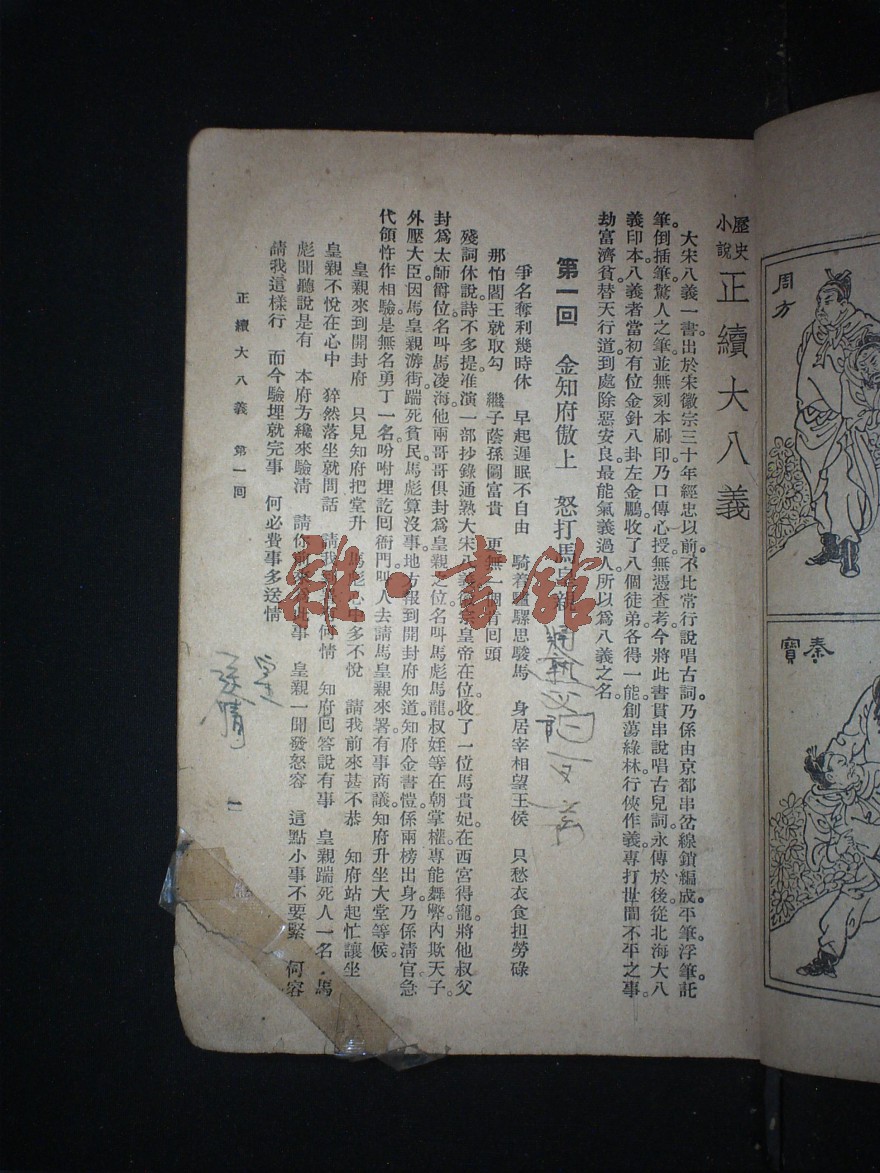 歷史小說 正續大八義
大宋八義一書。出於宋徽宗三十年經忠以前。不比常行說唱古詞。乃係由京都串岔線鎖編成。平筆。浮筆。託
筆。倒插筆。驚人之筆。並無刻本刷印。乃口傳心授。無憑查考。今將此書貫串說唱古兒詞。永傳於後。從北海大八
義印本。八義者當初有位金針八卦左金鵬。收了八個徒弟。各得一能。創蕩綠林。行俠作義。專打世間不平之事
劫富濟貧。替天行道。到處除惡安良。最能氣義過人。所以爲八義之名。
第一回 金知府傲上 怒打馬皇親
爭名奪利幾時休 早起遲眠不自由 騎着驢騾思駿馬 身居宰相望王侯 只愁衣食担勞碌
那怕閻王就取勾 繼子蔭孫圖富貴 更無一個肯回頭
殘詞休說。詩不多提。准演一部抄錄通熟大宋八義。徽宗皇帝在位。收了一位馬貴妃。在西宮得龍。將他叔父
封爲太師爵位。名叫馬凌海。他兩哥哥俱封爲皇親之位。名叫馬彪馬龍。叔姪等在朝掌權。專能舞弊。內欺天子。
外壓大臣。因馬皇親游街踹死貧民。馬彪算沒事。地方報到開封府知道。知府金書愷。係兩榜出身。乃係清官。急
代領忤作相驗。是無名勇丁一名。吩咐埋訖。囘衙門叫人去請馬皇親來署。有事商議。知府升坐大堂等候。
皇親來到開封府 只見知府把堂升 馬彪心中多不悅 請我前來甚不恭 知府站起忙讓坐
皇親不悅在心中 猝然落坐就問話 請我到 何情 知府回答說有事 皇親踹死人一名·馬
彪聞聽說是有 本府方纔來驗清 請你前來 此事 皇親一聞發怒容 這點小事不要緊 何容
請我這樣行 而今驗埋就完事 何必費事多送情
正續大八義 第一回 一
周方
秦寶
雜·書館